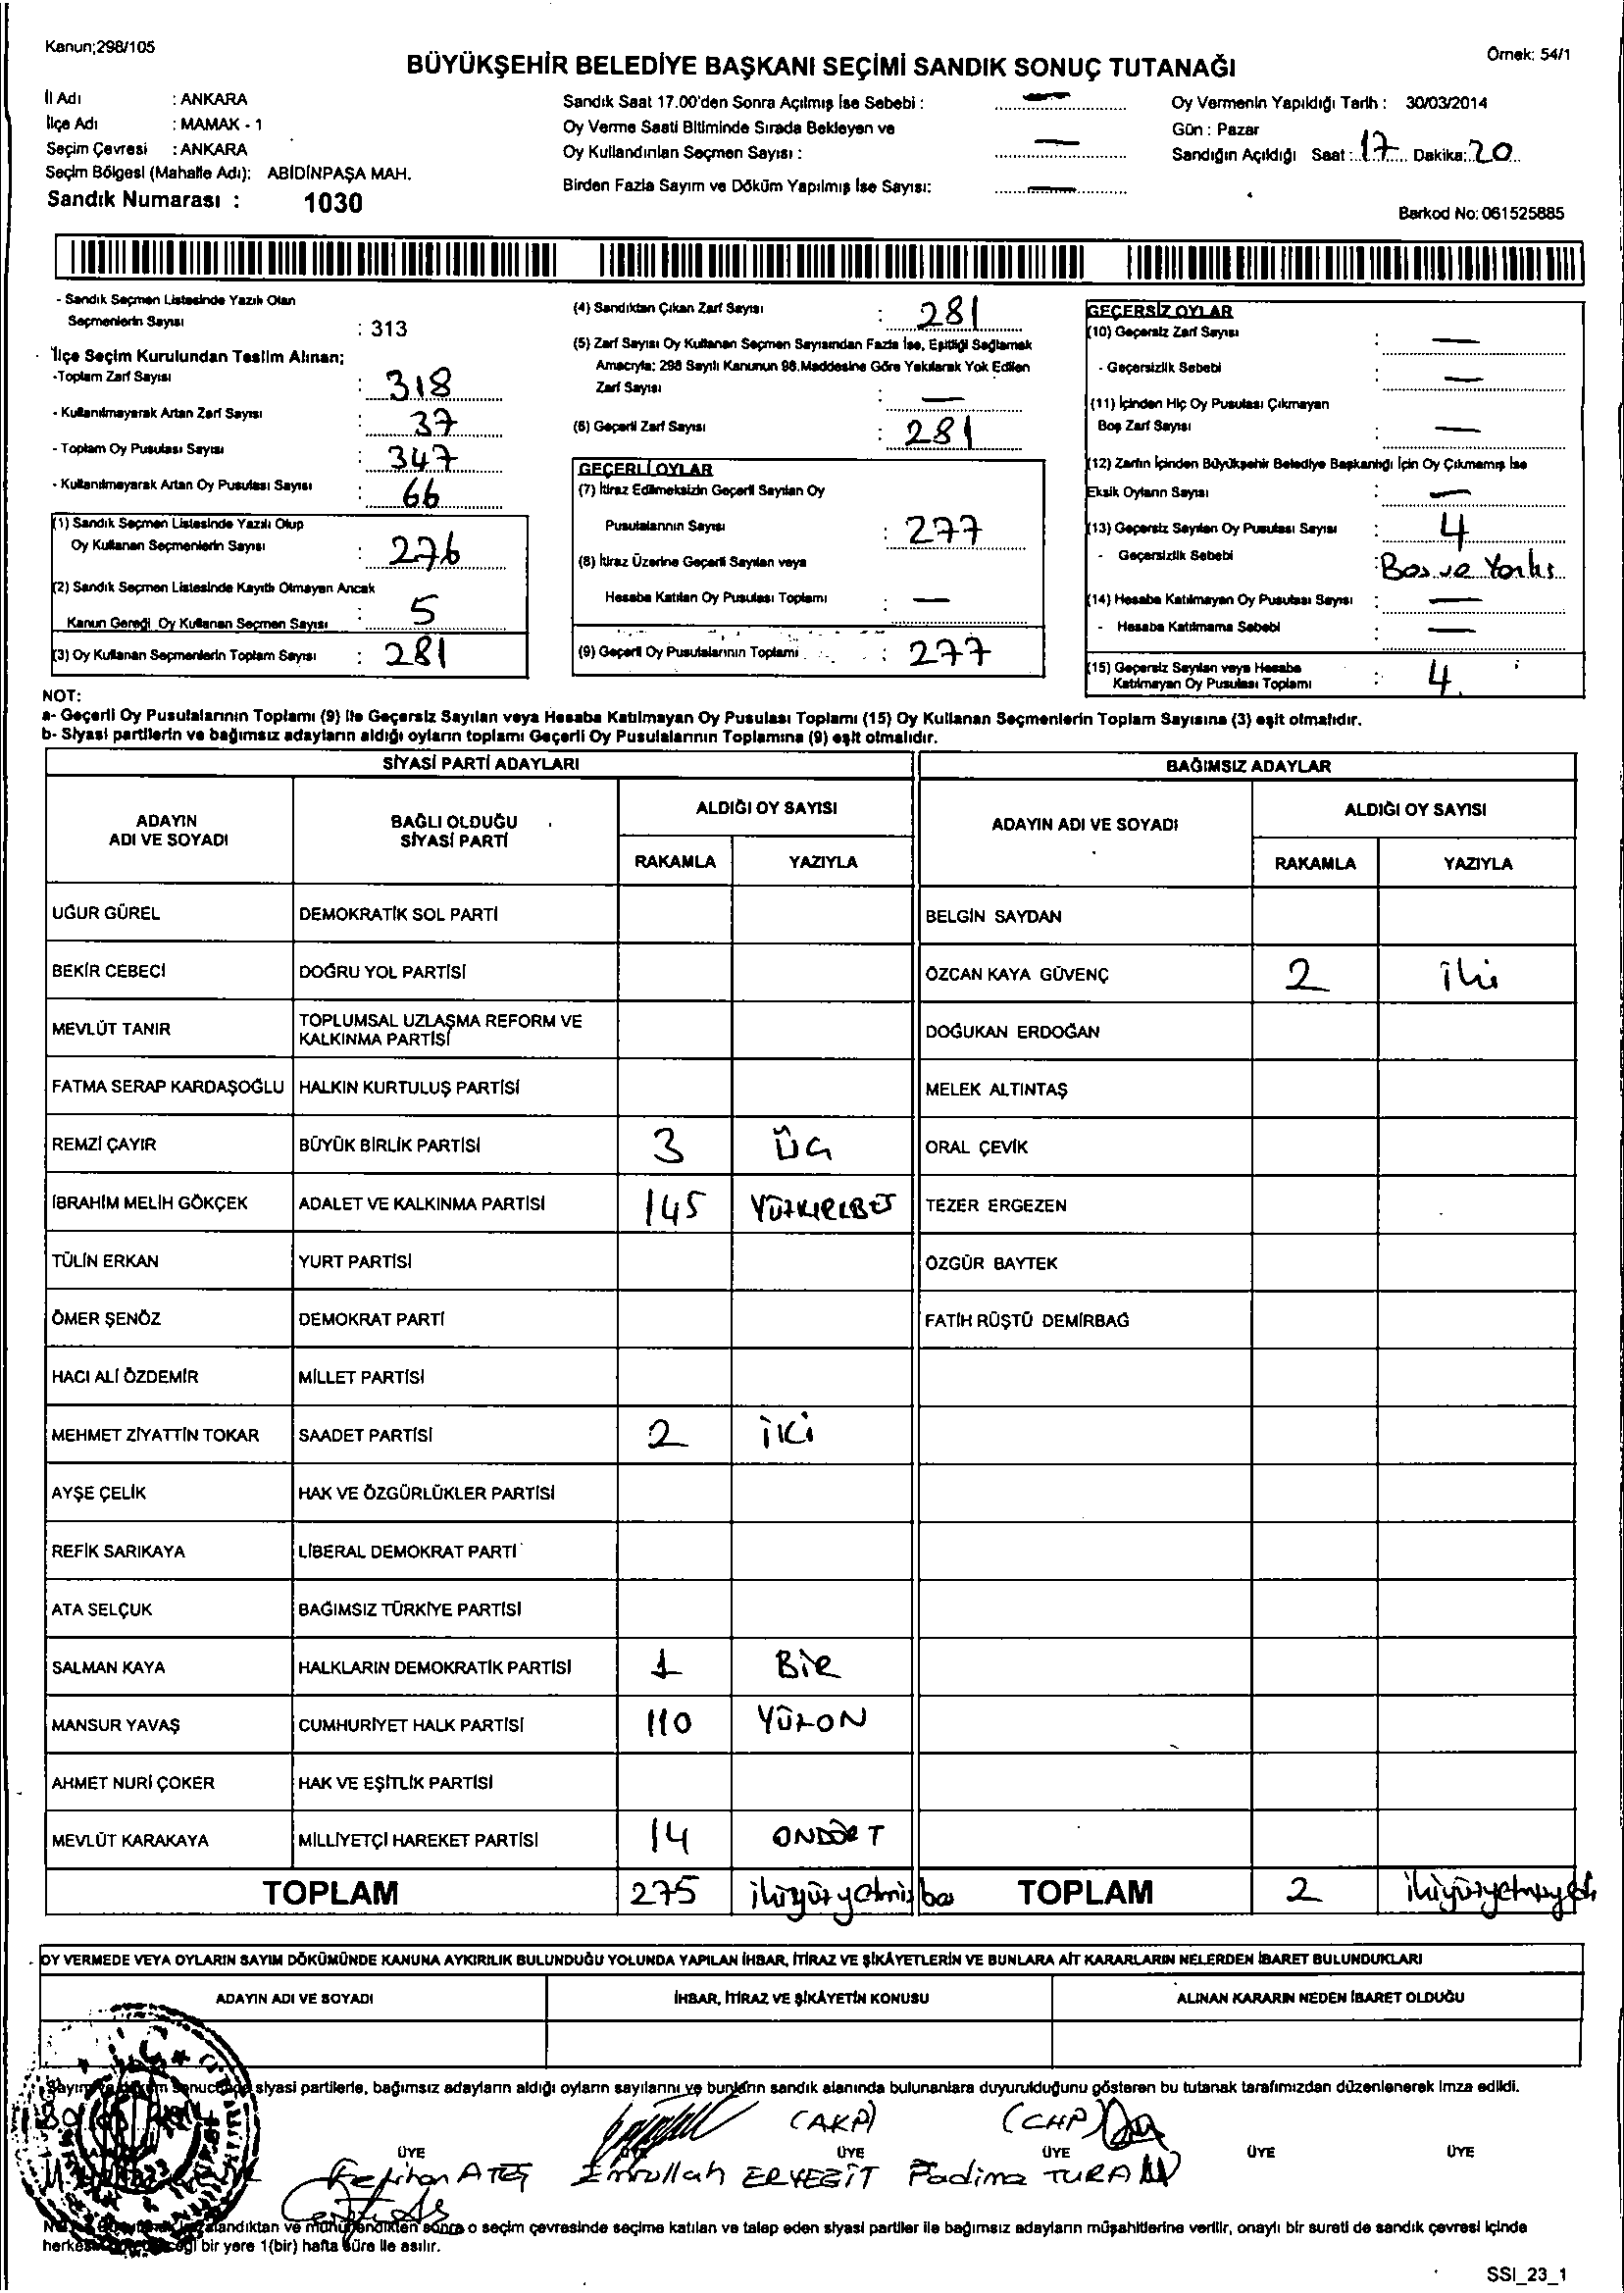 Kanun;298/105
Örnek: 54/1
BÜYÜKŞEHİR BELEDİYE BAŞKANI SEÇİMİ SANDIK SONUÇ TUTANAĞI
İl Adı : ANKARA
İlçe Adı : MAMAK - 1
Seçim Çevresi : ANKARA
Seçim Bölgesi (Mahalle Adı): ABİDİNPAŞA MAH.
Sandık Numarası : 1030
Sandık Saat 17.00'den Sonra Açılmış İse Sebebi : —
Oy Verme Saati Bitiminde Sırada Bekleyen ve
Oy Kullandırılan Seçmen Sayısı : —
Birden Fazla Sayım ve Döküm Yapılmış İse Sayısı: —
Oy Vermenin Yapıldığı Tarih : 30/03/2014
Gün : Pazar
Sandığın Açıldığı Saat : 17 Dakika: 20
Barkod No: 061525885
- Sandık Seçmen Listesinde Yazılı Olan
Seçmenlerin Sayısı : 313
İlçe Seçim Kurulundan Teslim Alınan;
-Toplam Zarf Sayısı : 318
- Kullanılmayarak Artan Zarf Sayısı : 37
- Toplam Oy Pusulası Sayısı : 347
- Kullanılmayarak Artan Oy Pusulası Sayısı : 66
(1) Sandık Seçmen Listesinde Yazılı Olup
Oy Kullanan Seçmenlerin Sayısı : 276
(2) Sandık Seçmen Listesinde Kayıtlı Olmayan Ancak
Kanun Gereği Oy Kullanan Seçmen Sayısı : 5
(3) Oy Kullanan Seçmenlerin Toplam Sayısı : 281
(4) Sandıktan Çıkan Zarf Sayısı : 281
(5) Zarf Sayısı Oy Kullanan Seçmen Sayısından Fazla İse, Eşitliği Sağlamak
Amacıyla; 298 Sayılı Kanunun 98.Maddesine Göre Yakılarak Yok Edilen
Zarf Sayısı : —
(6) Geçerli Zarf Sayısı : 281
GEÇERLİ OYLAR
(7) İtiraz Edilmeksizin Geçerli Sayılan Oy
Pusulalarının Sayısı : 277
(8) İtiraz Üzerine Geçerli Sayılan veya
Hesaba Katılan Oy Pusulası Toplamı : —
(9) Geçerli Oy Pusulalarının Toplamı : 277
GEÇERSİZ OYLAR
(10) Geçersiz Zarf Sayısı : —
- Geçersizlik Sebebi : —
(11) İçinden Hiç Oy Pusulası Çıkmayan
Boş Zarf Sayısı : —
(12) Zarfın İçinden Büyükşehir Belediye Başkanlığı İçin Oy Çıkmamış İse
Eksik Oyların Sayısı : —
(13) Geçersiz Sayılan Oy Pusulası Sayısı : 4
- Geçersizlik Sebebi : Boş ve Yanlış
(14) Hesaba Katılmayan Oy Pusulası Sayısı : —
- Hesaba Katılmama Sebebi : —
(15) Geçersiz Sayılan veya Hesaba
Katılmayan Oy Pusulası Toplamı : 4
NOT:
a- Geçerli Oy Pusulalarının Toplamı (9) ile Geçersiz Sayılan veya Hesaba Katılmayan Oy Pusulası Toplamı (15) Oy Kullanan Seçmenlerin Toplam Sayısına (3) eşit olmalıdır.
b- Siyasi partilerin ve bağımsız adayların aldığı oyların toplamı Geçerli Oy Pusulalarının Toplamına (9) eşit olmalıdır.
SİYASİ PARTİ ADAYLARI
BAĞIMSIZ ADAYLAR
ADAYIN ADI VE SOYADI
BAĞLI OLDUĞU SİYASİ PARTİ
ALDIĞI OY SAYISI
RAKAMLA YAZIYLA
ADAYIN ADI VE SOYADI
ALDIĞI OY SAYISI
RAKAMLA YAZIYLA
UĞUR GÜREL DEMOKRATİK SOL PARTİ BELGİN SAYDAN
BEKİR CEBECİ DOĞRU YOL PARTİSİ ÖZCAN KAYA GÜVENÇ 2 iki
MEVLÜT TANIR TOPLUMSAL UZLAŞMA REFORM VE KALKINMA PARTİSİ DOĞUKAN ERDOĞAN
FATMA SERAP KARDAŞOĞLU HALKIN KURTULUŞ PARTİSİ MELEK ALTINTAŞ
REMZİ ÇAYIR BÜYÜK BİRLİK PARTİSİ 3 ÜÇ ORAL ÇEVİK
İBRAHİM MELİH GÖKÇEK ADALET VE KALKINMA PARTİSİ 145 YÜZKIRKBEŞ TEZER ERGEZEN
TÜLİN ERKAN YURT PARTİSİ ÖZGÜR BAYTEK
ÖMER ŞENÖZ DEMOKRAT PARTİ FATİH RÜŞTÜ DEMİRBAĞ
HACI ALİ ÖZDEMİR MİLLET PARTİSİ
MEHMET ZİYATTİN TOKAR SAADET PARTİSİ 2 iKi
AYŞE ÇELİK HAK VE ÖZGÜRLÜKLER PARTİSİ
REFİK SARIKAYA LİBERAL DEMOKRAT PARTİ
ATA SELÇUK BAĞIMSIZ TÜRKİYE PARTİSİ
SALMAN KAYA HALKLARIN DEMOKRATİK PARTİSİ 1 BİR
MANSUR YAVAŞ CUMHURİYET HALK PARTİSİ 110 YÜZON
AHMET NURİ ÇOKER HAK VE EŞİTLİK PARTİSİ
MEVLÜT KARAKAYA MİLLİYETÇİ HAREKET PARTİSİ 14 ONDÖRT
TOPLAM 275 ikiyüzyetmişbeş TOPLAM 2 ikiyüzyetmişyedi
OY VERMEDE VEYA OYLARIN SAYIM DÖKÜMÜNDE KANUNA AYKIRILIK BULUNDUĞU YOLUNDA YAPILAN İHBAR, İTİRAZ VE ŞİKÂYETLERİN VE BUNLARA AİT KARARLARIN NELERDEN İBARET BULUNDUKLARI
ADAYIN ADI VE SOYADI İHBAR, İTİRAZ VE ŞİKÂYETİN KONUSU ALINAN KARARIN NEDEN İBARET OLDUĞU
siyasi partilerle, bağımsız adayların aldığı oyların sayılarını ve bunların sandık alanında bulunanlara duyurulduğunu gösteren bu tutanak tarafımızdan düzenlenerek imza edildi.
(AKP) (CHP)
ÜYE ÜYE ÜYE ÜYE ÜYE
ATEŞ Emrullah ERYEĞİT Fadime TURAN
o seçim çevresinde seçime katılan ve talep eden siyasi partiler ile bağımsız adayların müşahitlerine verilir, onaylı bir sureti de sandık çevresi içinde
bir yere 1(bir) hafta süre ile asılır.
SSI_23_1